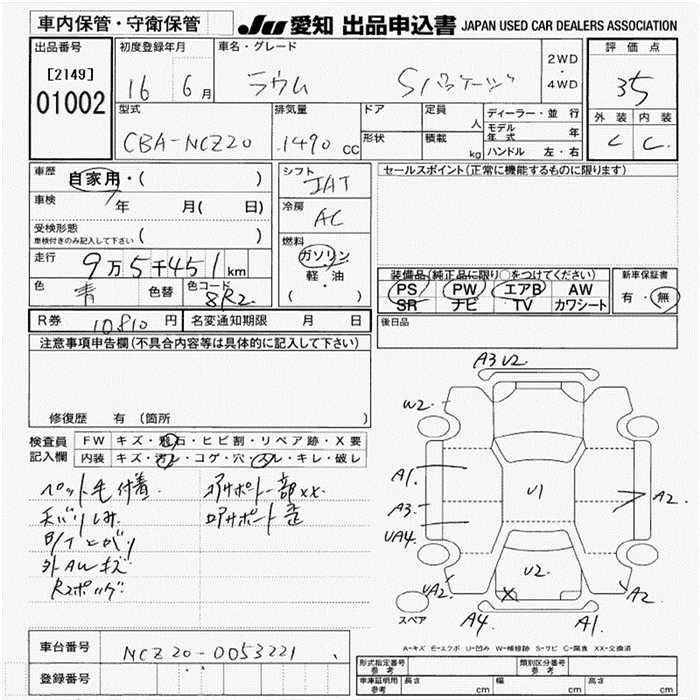 車内保管・守衛保管
JU 愛知 出品申込書 JAPAN USED CAR DEALERS ASSOCIATION
出品番号
[2149]
01002
初度登録年月
16 6月
車名・グレード
ラウム Sパッケージ
2WD
・
4WD
評価点
35
外装 内装
C C
型式
CBA-NCZ20
排気量
1490 cc
ドア
形状
定員
人
積載
kg
ディーラー・並行
モデル年式 年
ハンドル 左・右
車歴
自家用・( )
車検
年 月( 日)
受検形態
車検付きのみ記入して下さい ( )
走行
9万5千451km
色
青
色替
色コード
8R2
シフト
IAT
冷房
AC
燃料
ガソリン
軽・油
( )
セールスポイント(正常に機能するものに限ります)
装備品(純正品に限り○をつけてください)
PS PW エアB AW
SR ナビ TV カワシート
新車保証書
有・無
R券 10810円 名変通知期限 月 日
後日品
注意事項申告欄(不具合内容等は具体的に記入して下さい)
修復歴 有(箇所 )
検査員
記入欄
FW キズ・飛石・ヒビ割・リペア跡・X要
内装 キズ・汚レ・コゲ・穴・スレ・キレ・破レ
ペット毛付着
天バリしみ
外AWキズ
コアサポート一部XX
コアサポート歪
A3 U2
W2
A1
A3
UA4
UA2
U1
U2
X
A2
A2
A4
A1
スペア
A-キズ E-エクボ U-凹み W-補修跡 S-サビ C-腐食 XX-交換済
車台番号
NCZ20-0053221
登録番号
形式指定番号
参考
類別区分番号
参考
車庫証明用
参考
長さ cm
幅 cm
高さ cm